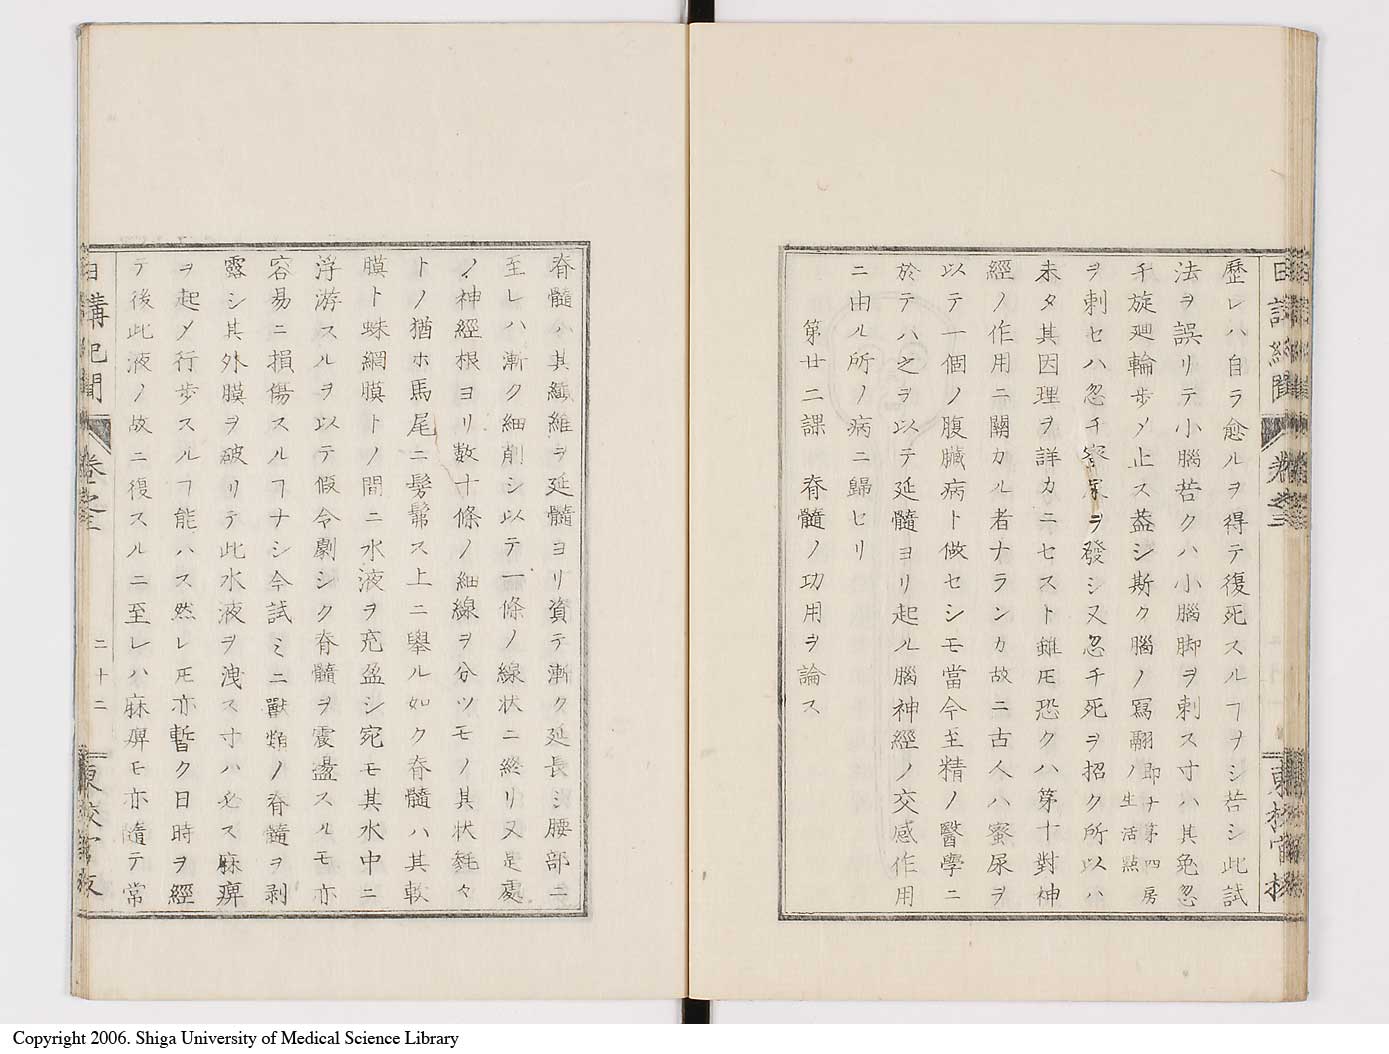 日講紀聞 卷之三 東校官板
歷レハ自ラ愈ルヲ得テ復死スルヿナシ若シ此試
法ヲ誤リテ小腦苦クハ小腦脚ヲ刺ス寸ハ其兔忽
チ旋廻輪步メ止ス葢シ斯ク腦ノ寫翮ノ即チ第四房生活點
ヲ刺セハ忽チヲ發シ又忽チ死ヲ招ク所以ハ
未タ其因理ヲ詳カニセスト雖モ恐クハ第十對神
經ノ作用ニ關カル者ナランカ故ニ古人ハ蜜尿ヲ
以テ一個ノ腹臟病ト做セシモ當今至精ノ醫學ニ
於テハ之ヲ以テ延髓ヨリ起ル腦神經ノ交感作用
ニ由ル所ノ病ニ歸ヒリ
第廿二課 脊髓ノ功用ヲ論ス
脊髓ハ其纎維ヲ延髓ヨリ資テ漸ク延長シ腰部ニ
至レハ漸ク細削シ以テ一條ノ線狀ニ終リ又是處
ノ神經根ヨリ數十條ノ細線ヲ分ツモノ其狀毿々
トノ猶ホ馬尾ニ髣髴ス上ニ擧ル如ク脊髓ハ其軟
膜ト蛛網膜トノ間ニ水液ヲ充盈シ宛モ其水中ニ
浮游スルヲ以テ假令劇シク脊髓ヲ震盪スルモ亦
容易ニ損傷スルヿナシ今試ミニ獸類ノ脊髓ヲ剥
露シ其外膜ヲ破リテ此水液ヲ洩ス寸ハ必ス麻痺
ヲ起メ行步スルヿ能ハス然レモ亦暫ク日時ヲ經
テ後此液ノ故ニ復スルニ至レハ麻痺モ亦隨テ常
日講記聞 卷之三 二十二 東校官板
Copyright 2006. Shiga University of Medical Science Library